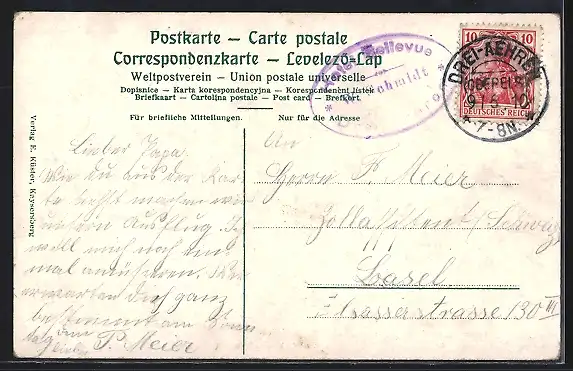 Postkarte – Carte postale
Correspondenzkarte – Levelező-Lap
Weltpostverein – Union postale universelle
Dopisnice – Karta korespondencyjna – Korespondenční lístek
Briefkaart – Cartolina postale – Post card – Brefkort.
Für briefliche Mitteilungen.
Nur für die Adresse
Verlag E. Küster, Kaysersberg
Hotel Bellevue
Schmidt
10 10
DEUTSCHES REICH
DREI-AEHREN
(OBERELS.)
7-8N.
Lieber Papa.
Wie du aus der Kar-
te siehst machen wir
untern Ausflug. Ich
will mich noch ein-
mal
erwarten Dich ganz
bestimmt am Sonn
tag Dein
P. Meier
An
Herrn F. Meier
Zollassistent /Schweiz
Basel
Elsasserstrasse 130 III